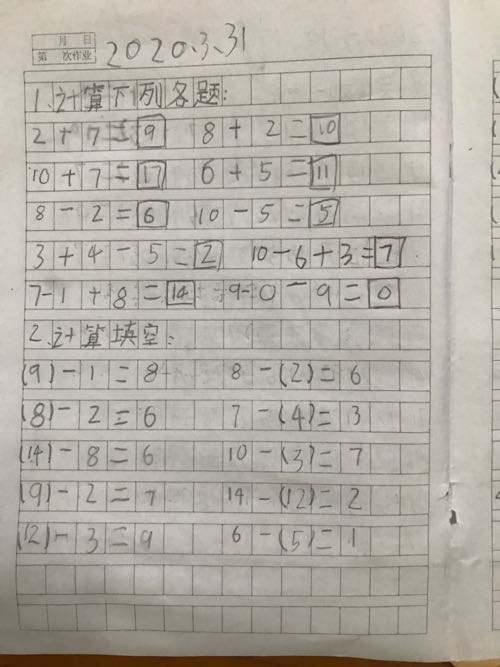 月 日
第 次作业
2020.3.31
1.计算下列各题:
2+7=9 8+2=10
10+7=17 6+5=11
8-2=6 10-5=5
3+4-5=2 10-6+3=7
7-1+8=14 9-0-9=0
2.计算填空:
(9)-1=8 8-(2)=6
(8)-2=6 7-(4)=3
(14)-8=6 10-(3)=7
(9)-2=7 14-(12)=2
(12)-3=9 6-(5)=1